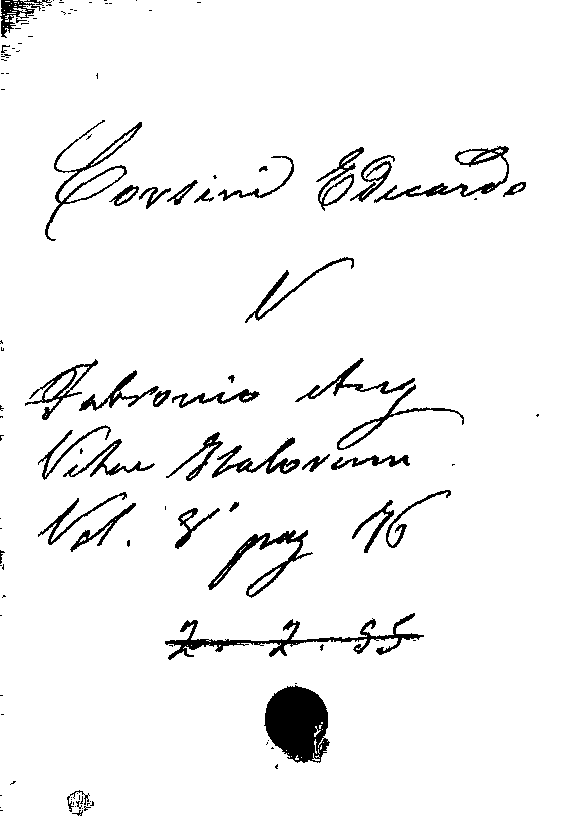 Corsini Eduardo
V
Fabronio Ang
Vitae Italorum
Vol. 8° pag 76
2. 2. 55